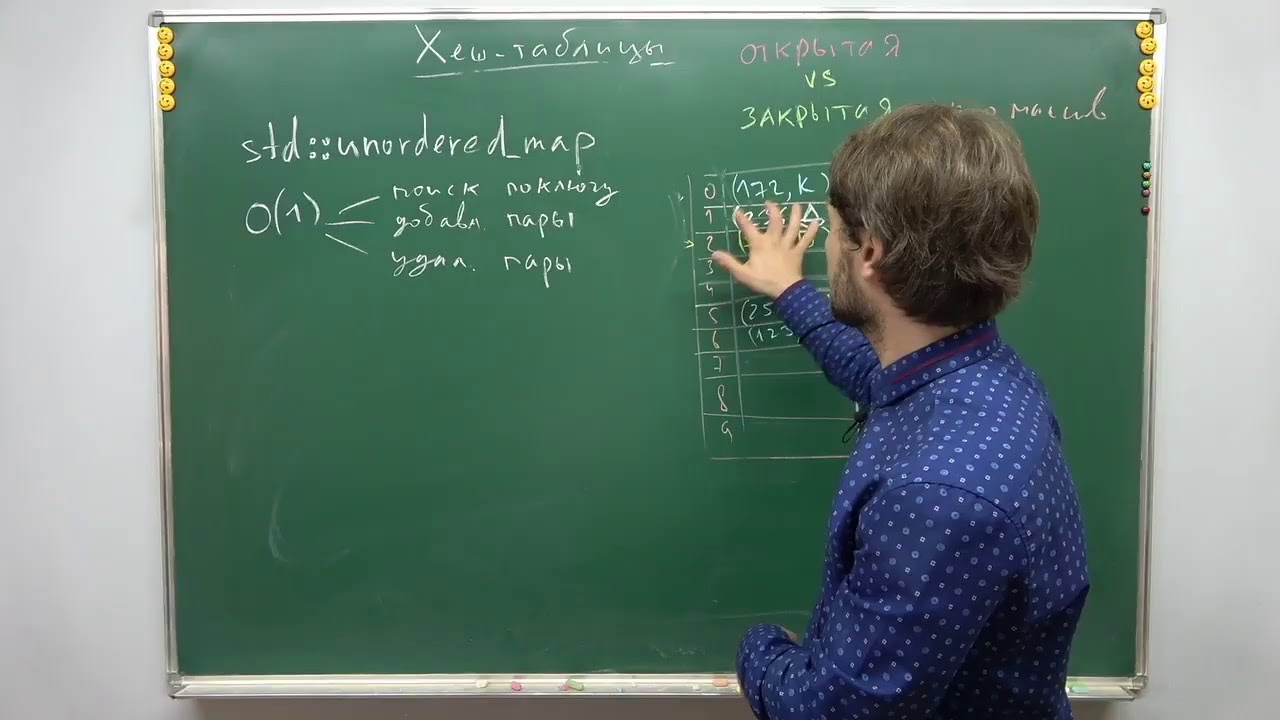 Хеш-таблицы
ОТКРЫТАЯ
VS
ЗАКРЫТАЯ
массив
std::unordered_map
O(1)
поиск по ключу
добавл. пары
удал. пары
0 (172, К)
1
2
3
4
5 (25
6 (123
7
8
9